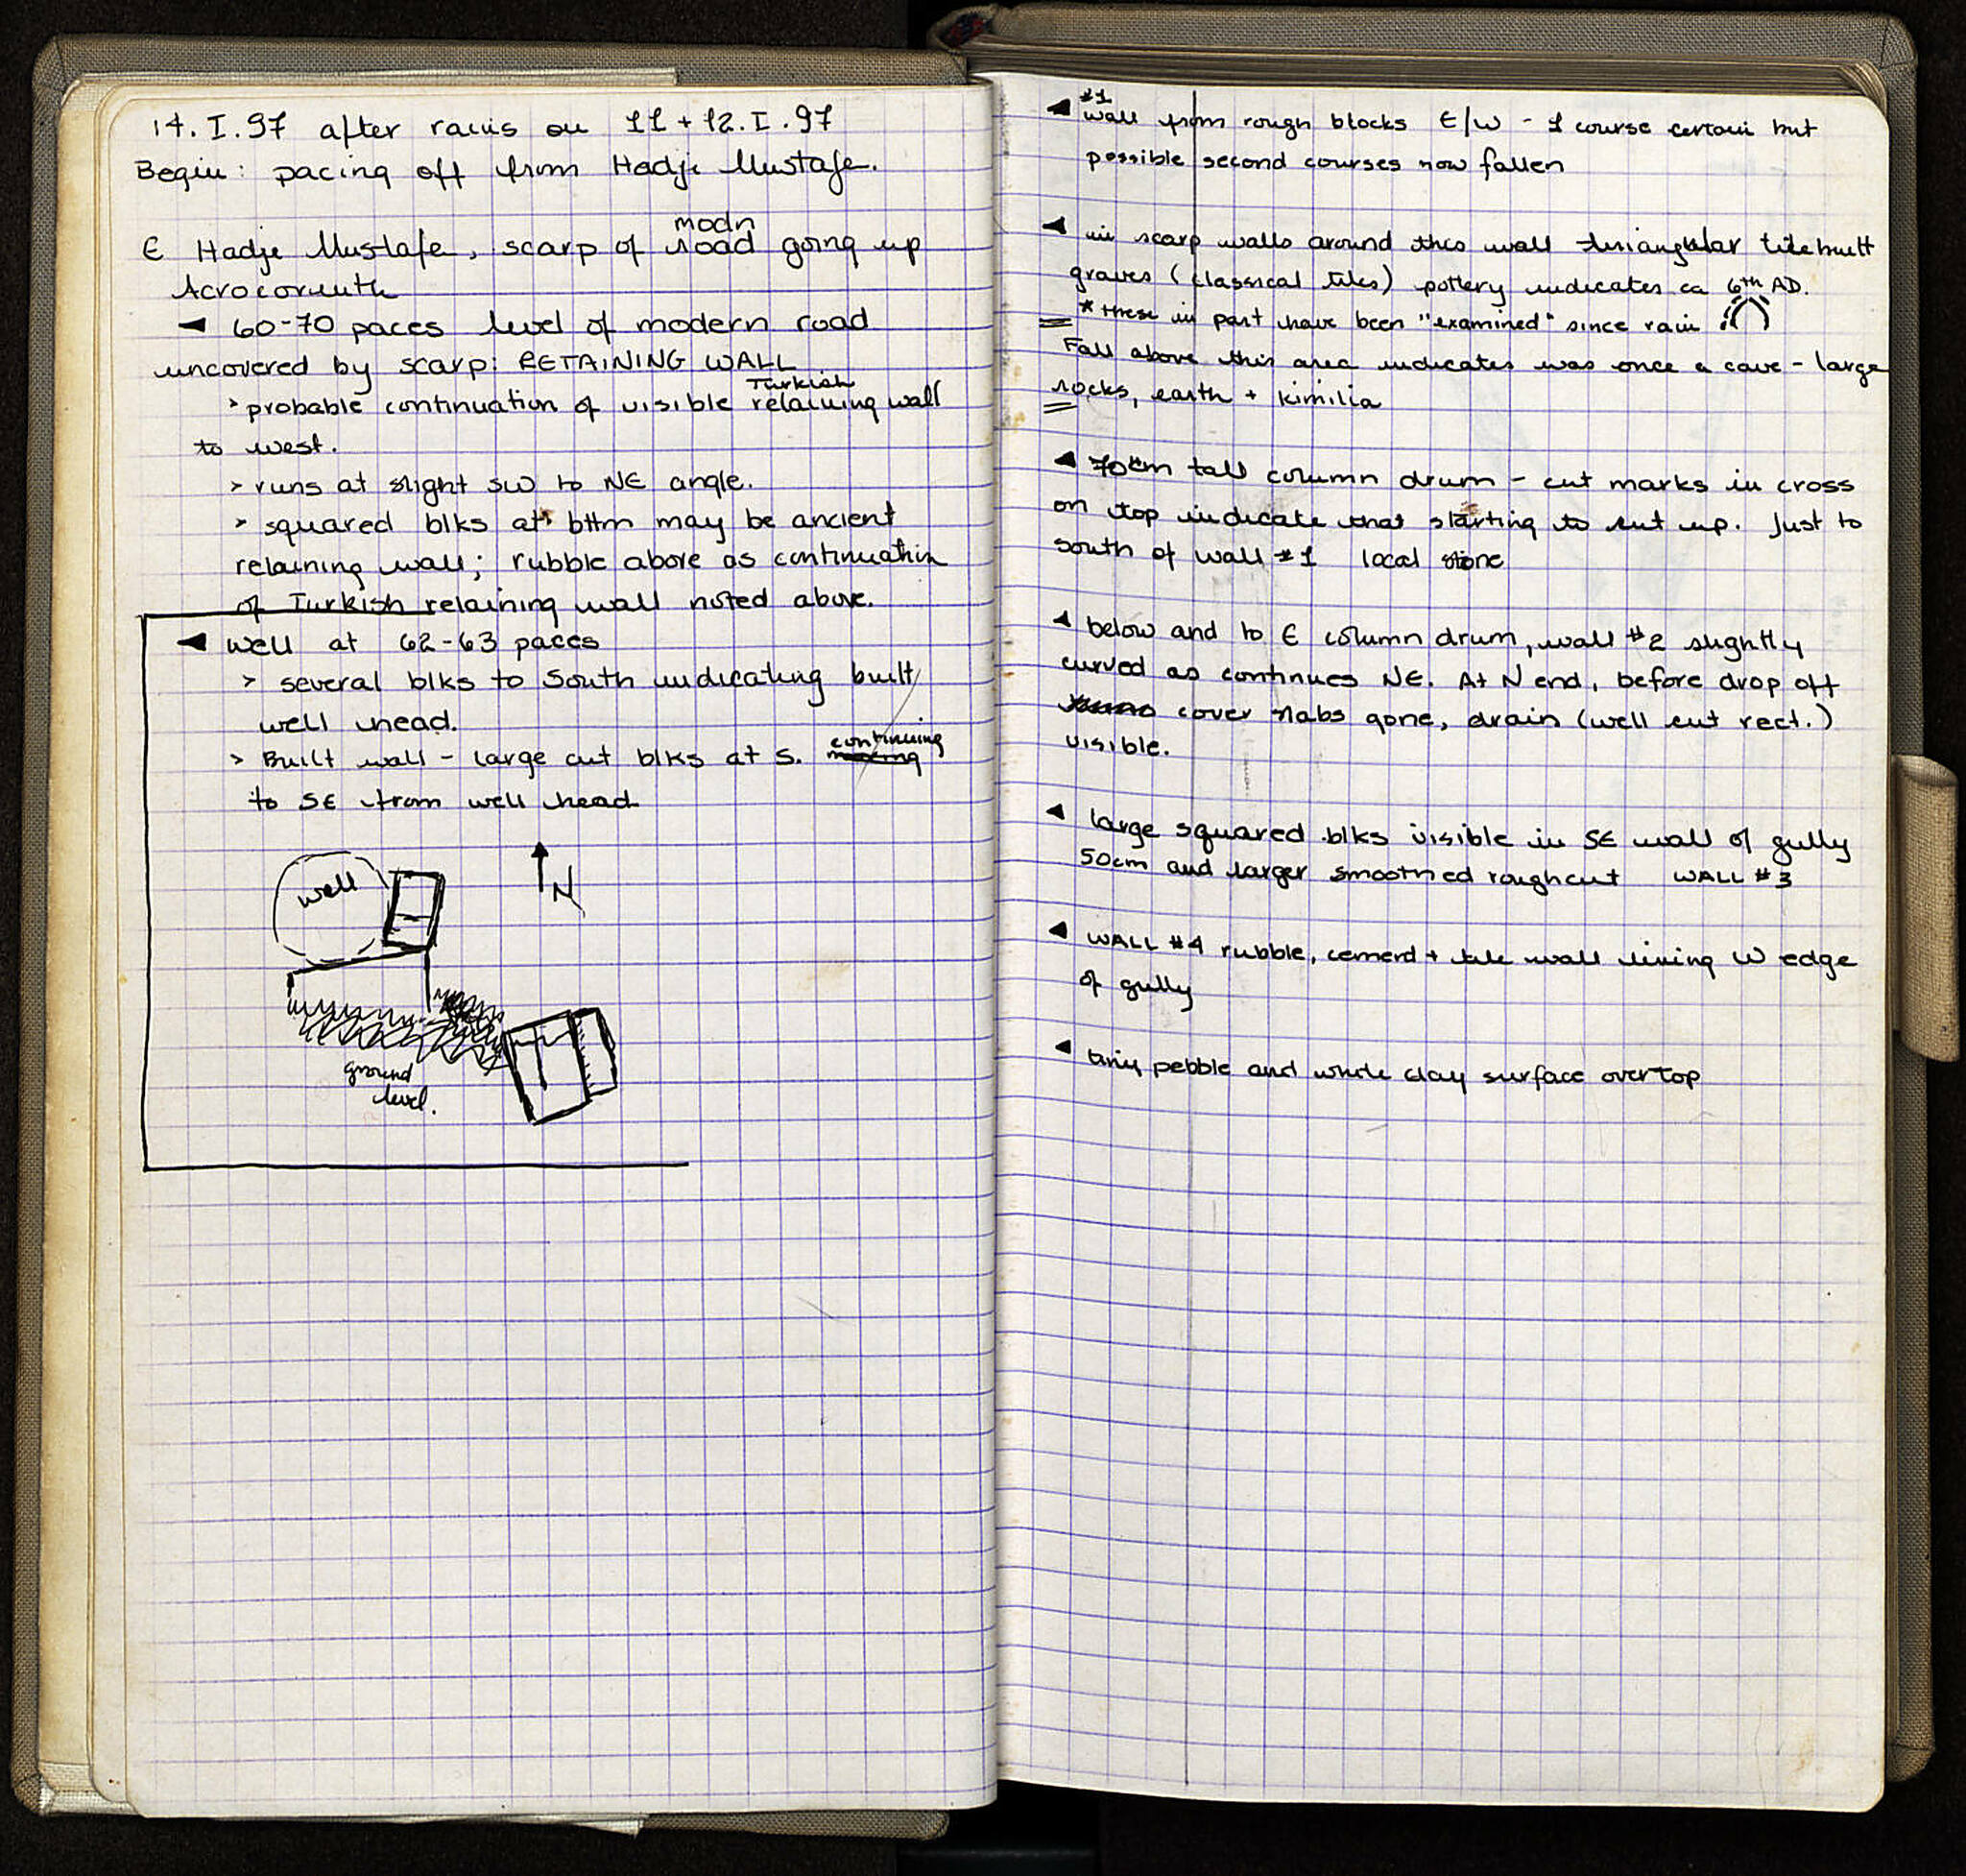 14.I.97 after rains on 11 + 12.I.97
Begin: pacing off from Hadji Mustafe.
E Hadje Mustafe, scarp of modn road going up
Acrocorinth
◄ 60-70 paces level of modern road
uncovered by scarp: RETAINING WALL
> probable continuation of visible Turkish retaining wall
to west.
> runs at slight SW to NE angle.
> squared blks at bttm may be ancient
retaining wall; rubble above as continuation
of Turkish retaining wall noted above.
◄ well at 62-63 paces
> several blks to South indicating built
well head.
> Built wall - large cut blks at S. continuing
to SE from well head
well
N
ground
level.
◄ #1 wall from rough blocks E/W - 1 course certain but
possible second courses now fallen
◄ in scarp walls around this wall triangular tile built
graves (classical tiles) pottery indicates ca 6th AD.
* these in part have been "examined" since rain
Fall above this area indicates was once a cave - large
rocks, earth + kimilia
◄ 70cm tall column drum - cut marks in cross
on top indicate that starting to cut up. Just to
south of wall #1 local stone
◄ below and to E column drum, wall #2 slightly
curved as continues NE. At N end, before drop off
cover slabs gone, drain (well cut rect.)
visible.
◄ large squared blks visible in SE wall of gully
50cm and larger smoothed roughcut WALL #3
◄ WALL #4 rubble, cement + tile wall lining W edge
of gully
◄ tiny pebble and white clay surface over top